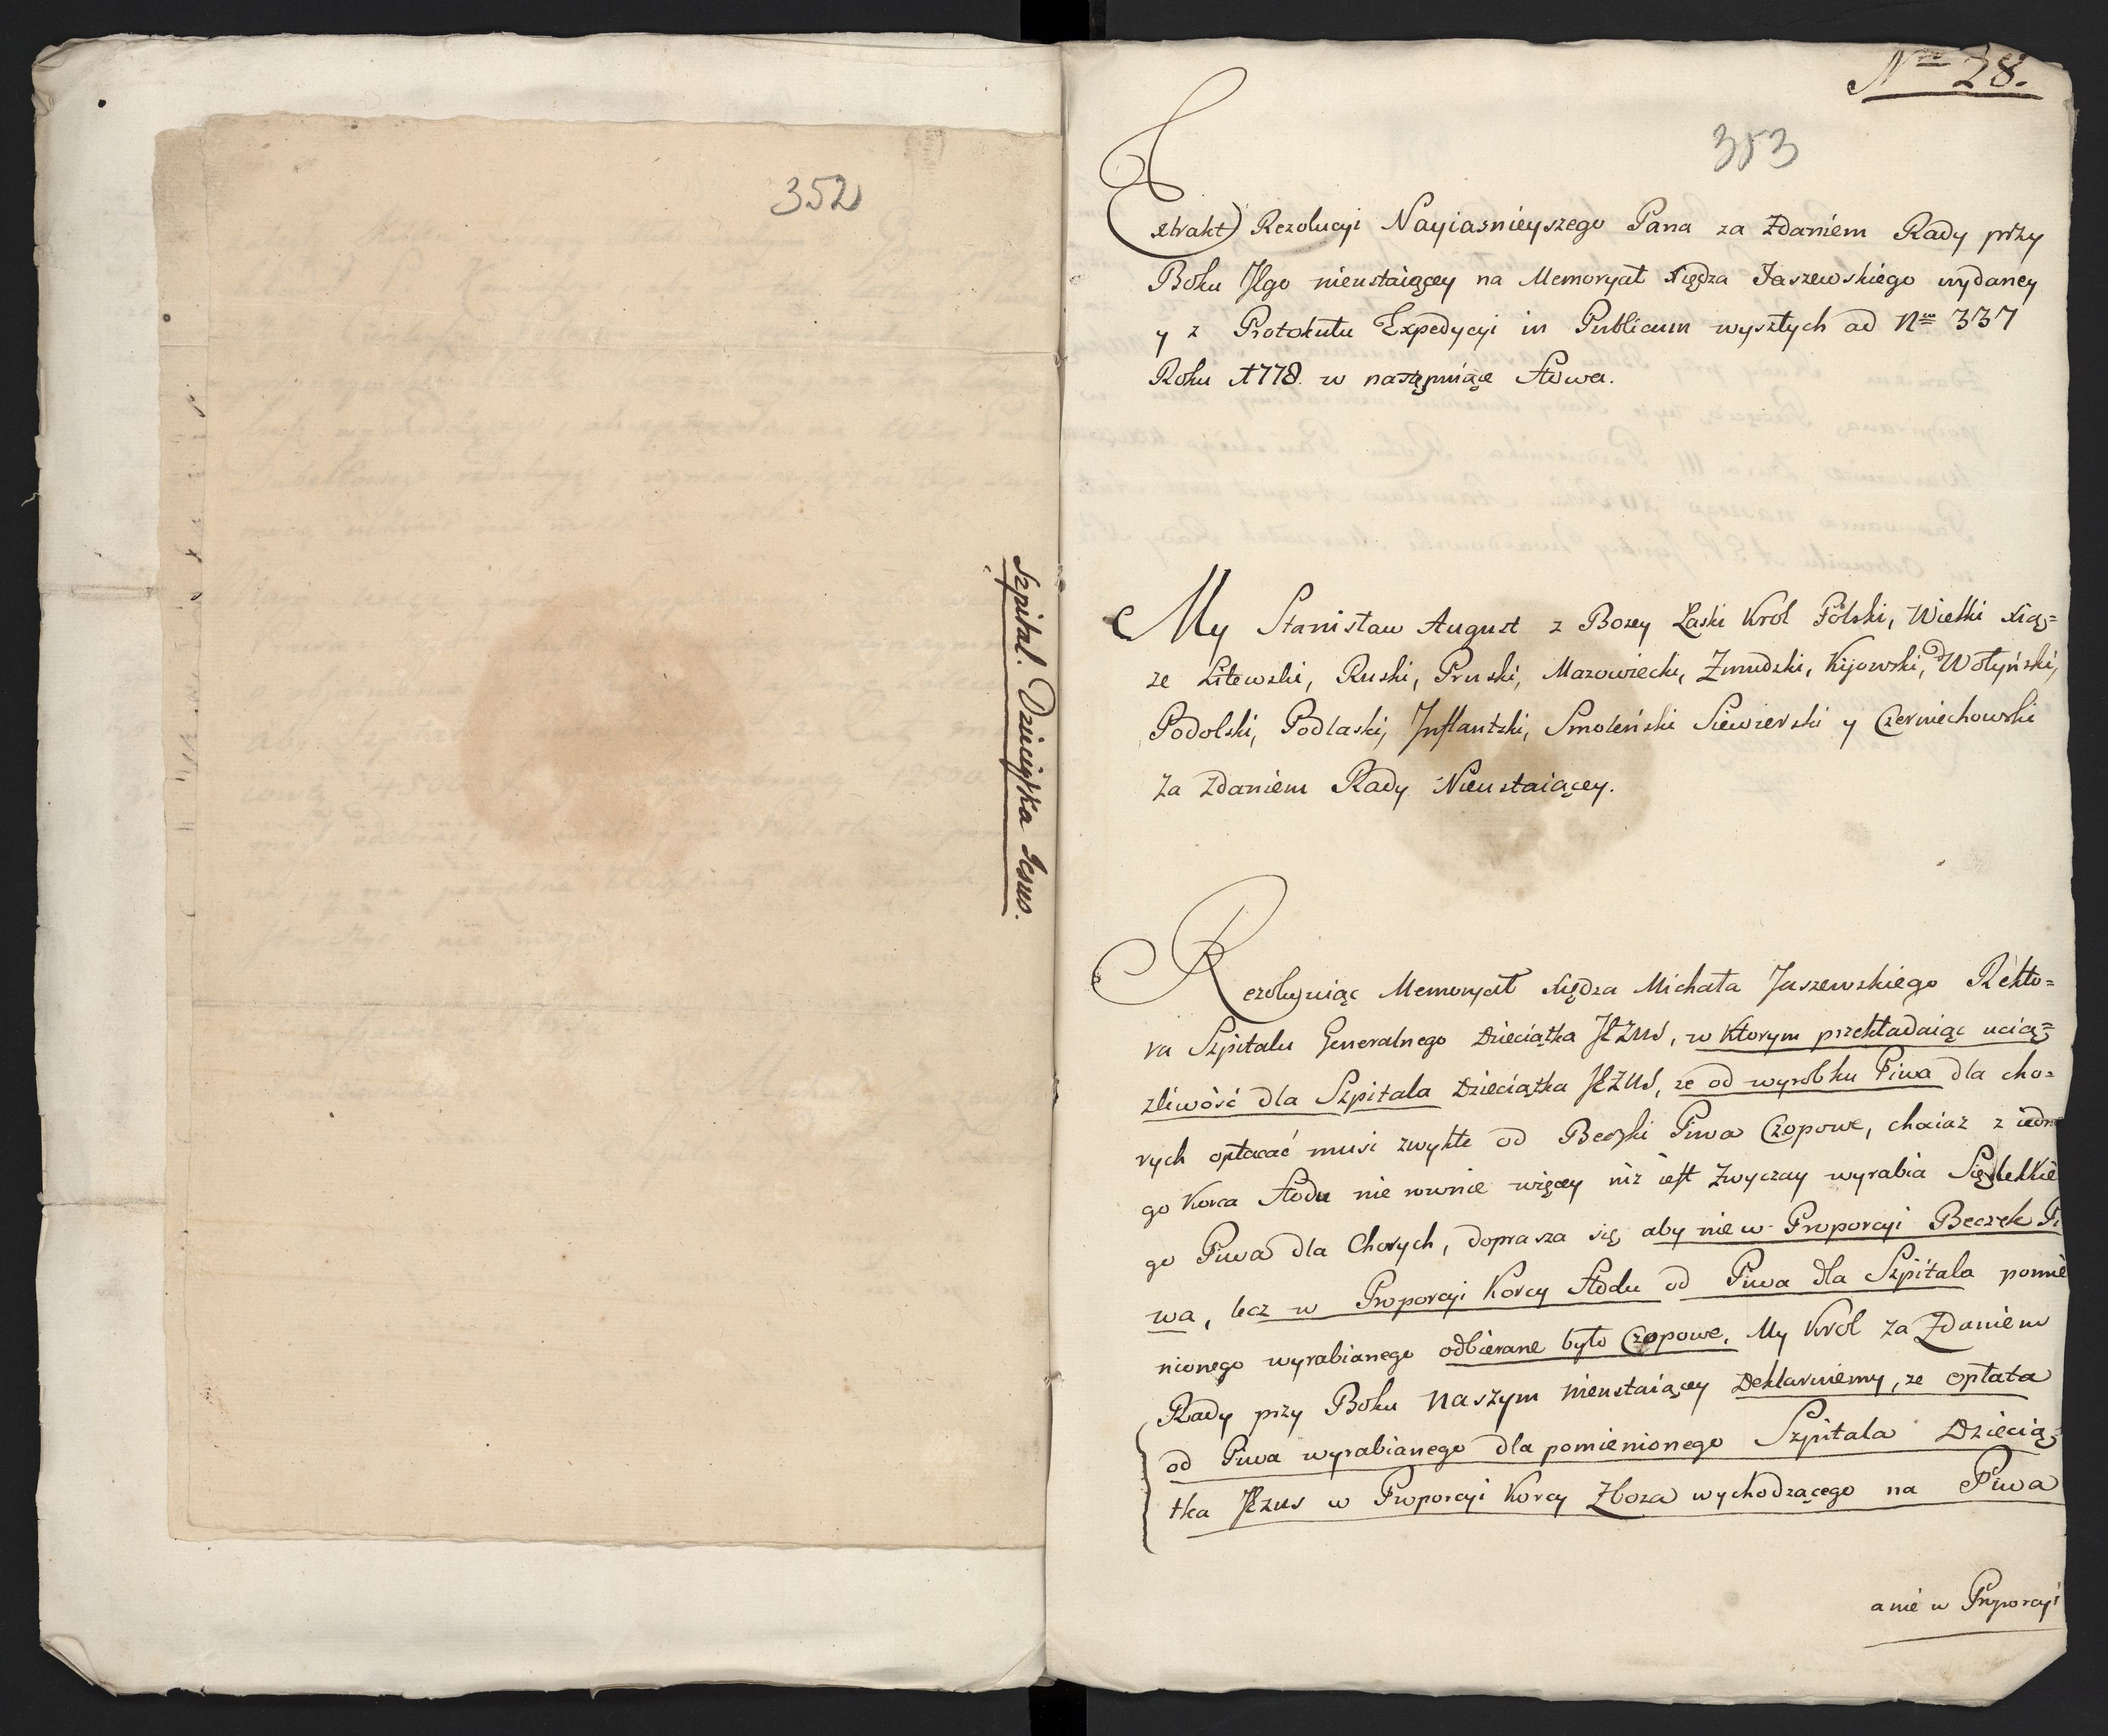 352
Szpital. Dzieciątka Iesus.
Nro 28.
353
Extrakt Rezolucyi Nayiasnieyszego Pana za Zdaniem Rady przy
Boku Jego nieustaiącey na Memoryał Xiędza Jaszewskiego wydaney
y z Protokułu Expedycyi in Publicum wyszłych ad Nrum 337
Roku 1778. w następuiące Słowa.
My Stanisław August z Bozey Łaski Król Polski, Wielki Xiąz=
ze Litewski, Ruski, Pruski, Mazowiecki, Zmudzki, Kijowski, Wołyński,
Podolski, Podlaski, Inflantski, Smoleński Siewierski y Czerniechowski
Za Zdaniem Rady Nieustaiącey.
Rezolwuiąc Memoryał Xiędza Michała Jaszewskiego Rekto=
ra Szpitalu Generalnego Dzieciątka JEZUS, w ktorym przekładaiąc ucią=
zliwość dla Szpitala Dzieciątka JEZUS, ze od wyrobku Piwa dla cho=
rych opłacać musi zwykłe od Beczki Piwa Czopowe, chociaz z iedne
go Korca Słodu nie rownie więcey niz iest Zwyczay wyrabia Się lekkie
go Piwa dla Chorych, doprasza się aby nie w Proporcyi Beczek Pi
wa, lecz w Proporcyi Korcy Słodu od Piwa dla Szpitala pomie
nionego wyrabianego odbierane było Czopowe, My Król Za Zdaniem
Rady przy Boku Naszym nieustaiącey Deklaruiemy, ze opłata
od Piwa wyrabianego dla pomienionego Szpitala Dziecią
tka JEZUS w Proporcyi Korcy Zboza wychodzącego na Piwa
a nie w Proporcyi